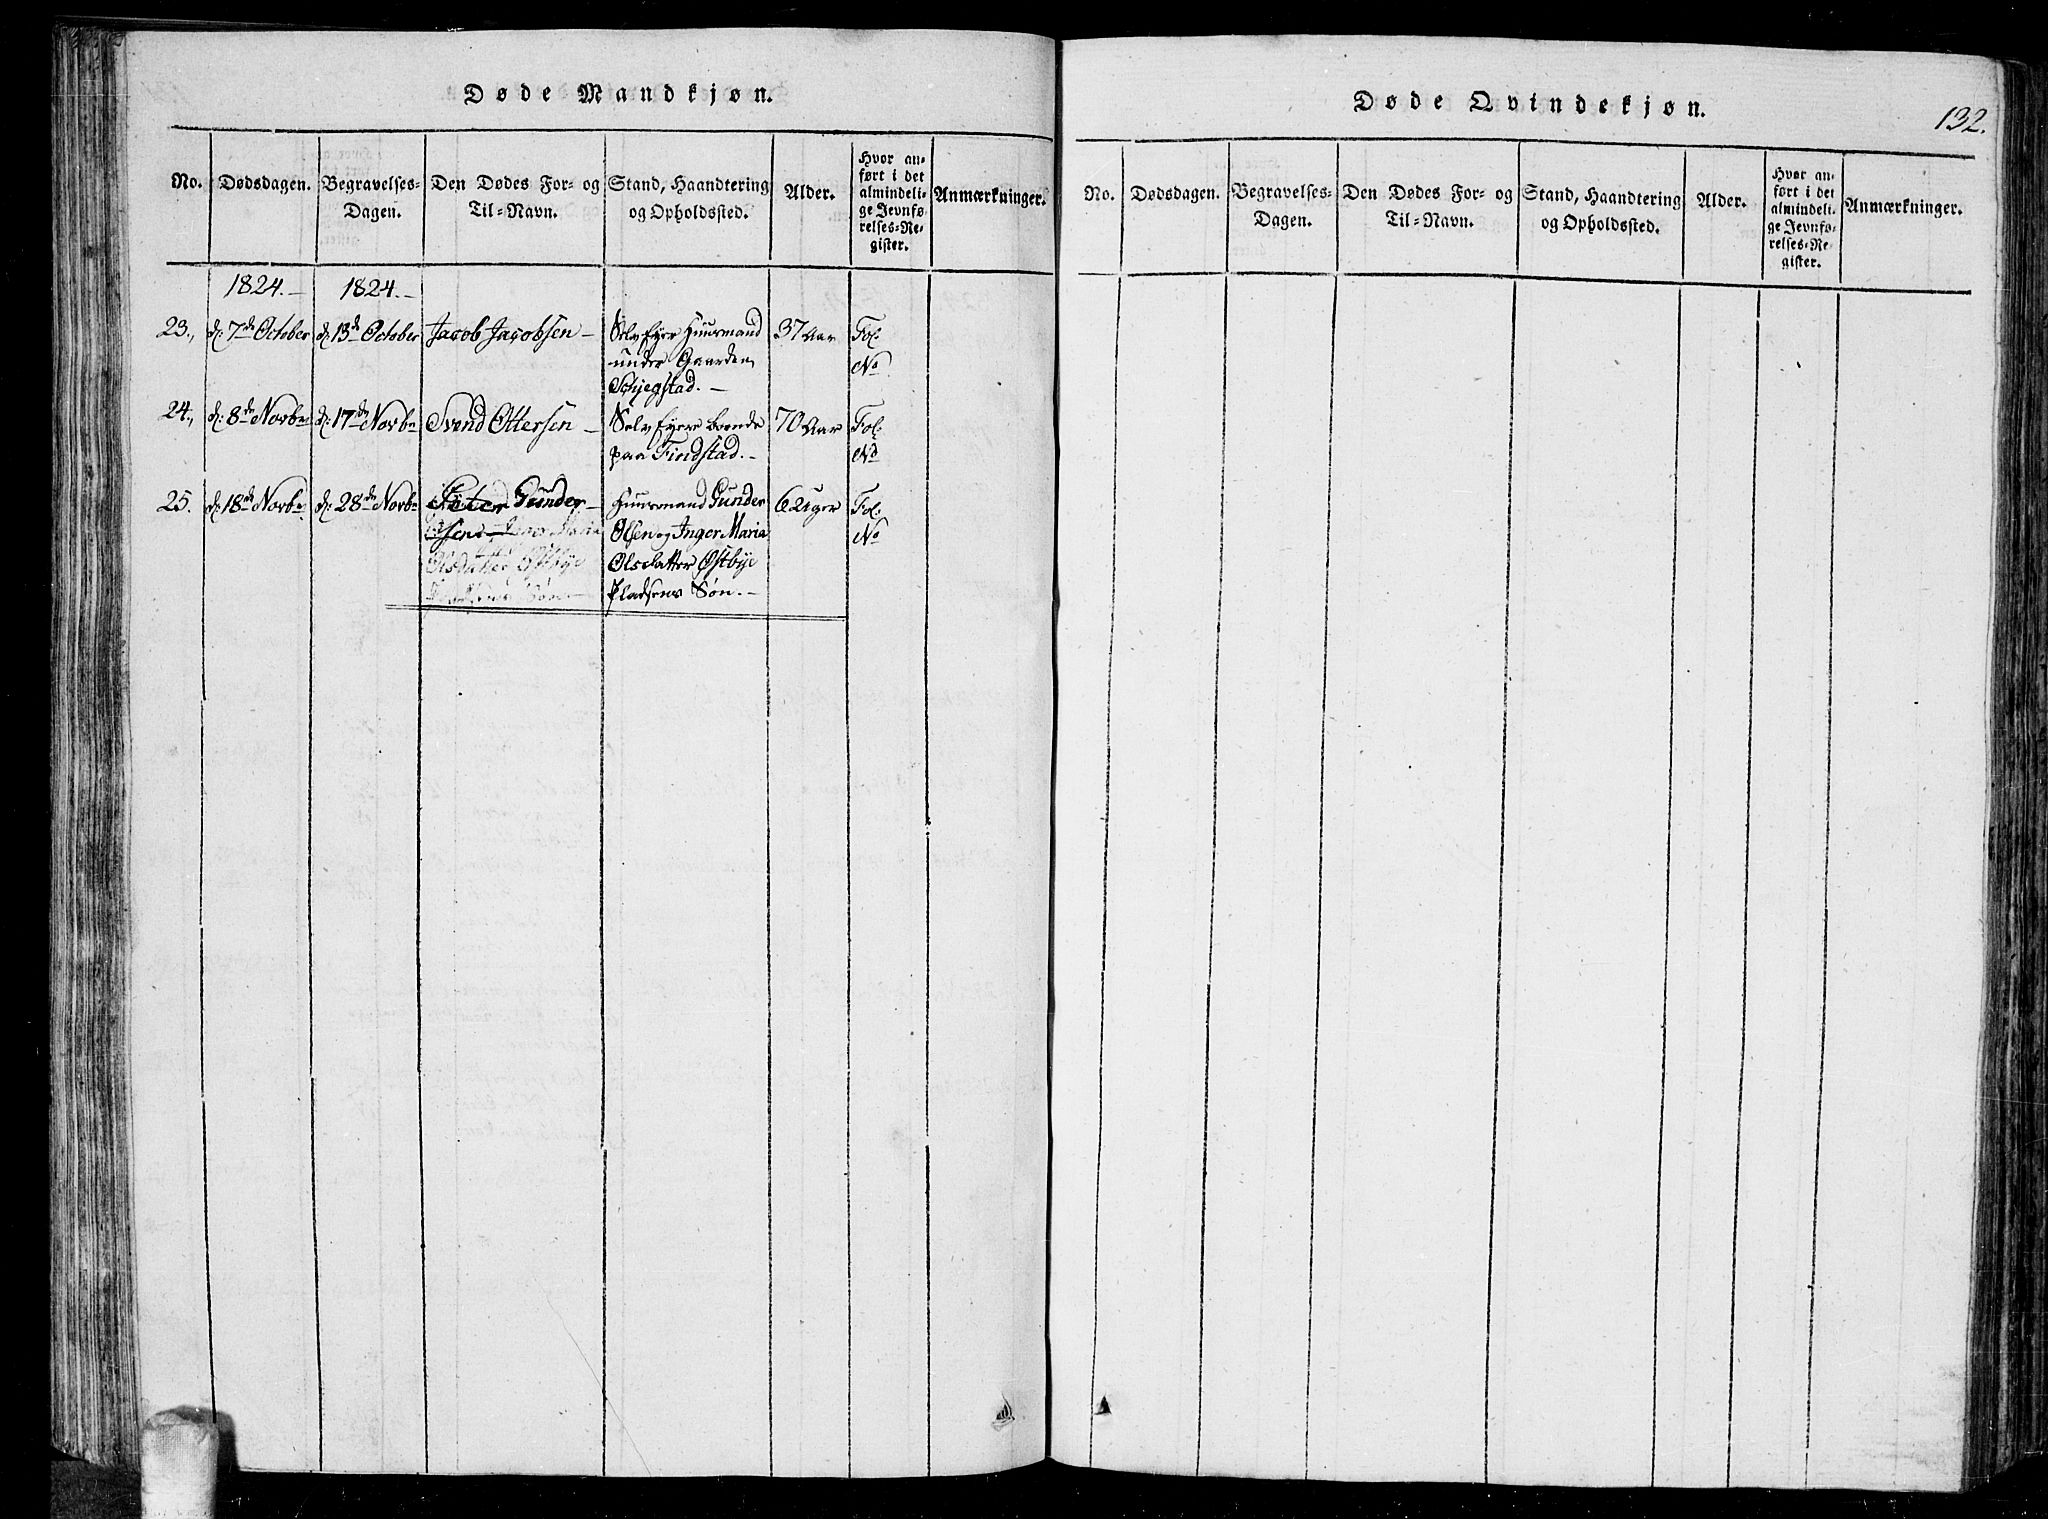 Døde Mandkjøn.
No. Dødsdagen. Begravelses-Dagen. Den Dødes For- og Til-Navn. Stand, Haandtering og Opholdssted. Alder. Hvor anført i det almindelige Jevnførelses-Register. Anmærkninger.
1824.- 1824.-
23., d: 7de October d: 13de October Jacob Jacobsen - Selveyer Huusmand 37 Aar Fol:
under Gaarden No
Schjegstad. -
24., d: 8de Novbr d: 17de Novbr Svend Ottersen - Selveyer boende 70 Aar Fol:
paa Findstad. - No
25. d: 18de Novbr. d: 28de Novbr Peter Gunder- Huusmand Gunder 6 Uger Fol:
sen Olsen og Inger Maria No
Olsdatter Østbye Olsdatter Østbye
Søn - Pladsens Søn. -
Døde Qvindekjøn.
132.
No. Dødsdagen. Begravelses-Dagen. Den Dødes For- og Til-Navn. Stand, Haandtering og Opholdssted. Alder. Hvor anført i det almindelige Jevnførelses-Register. Anmærkninger.